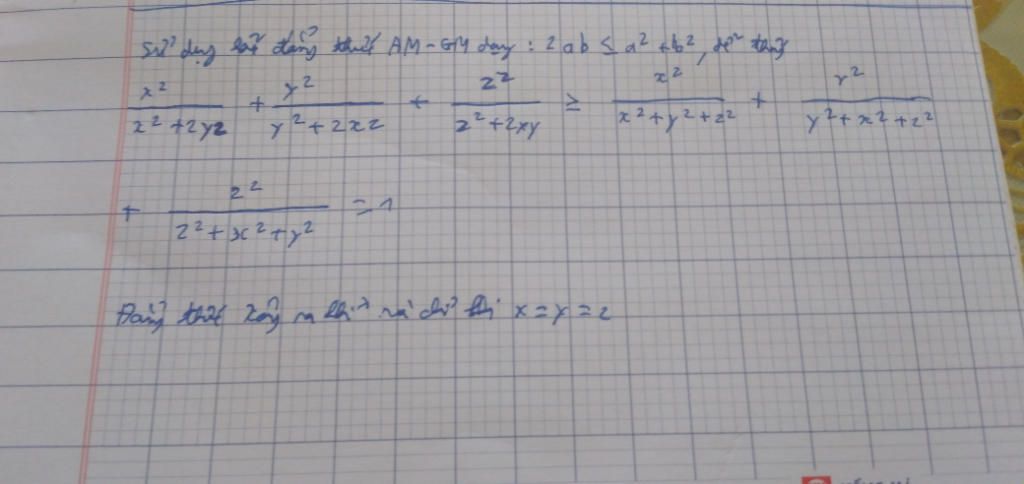 Sử dụng bất đẳng thức AM-GM dạng: 2ab ≤ a² + b²,
x²/(x² + 2yz) + y²/(y² + 2xz) + z²/(z² + 2xy) ≥ x²/(x² + y² + z²) + y²/(y² + x² + z²)
+ z²/(z² + x² + y²) = 1
Đẳng thức xảy ra khi và chỉ khi x = y = z